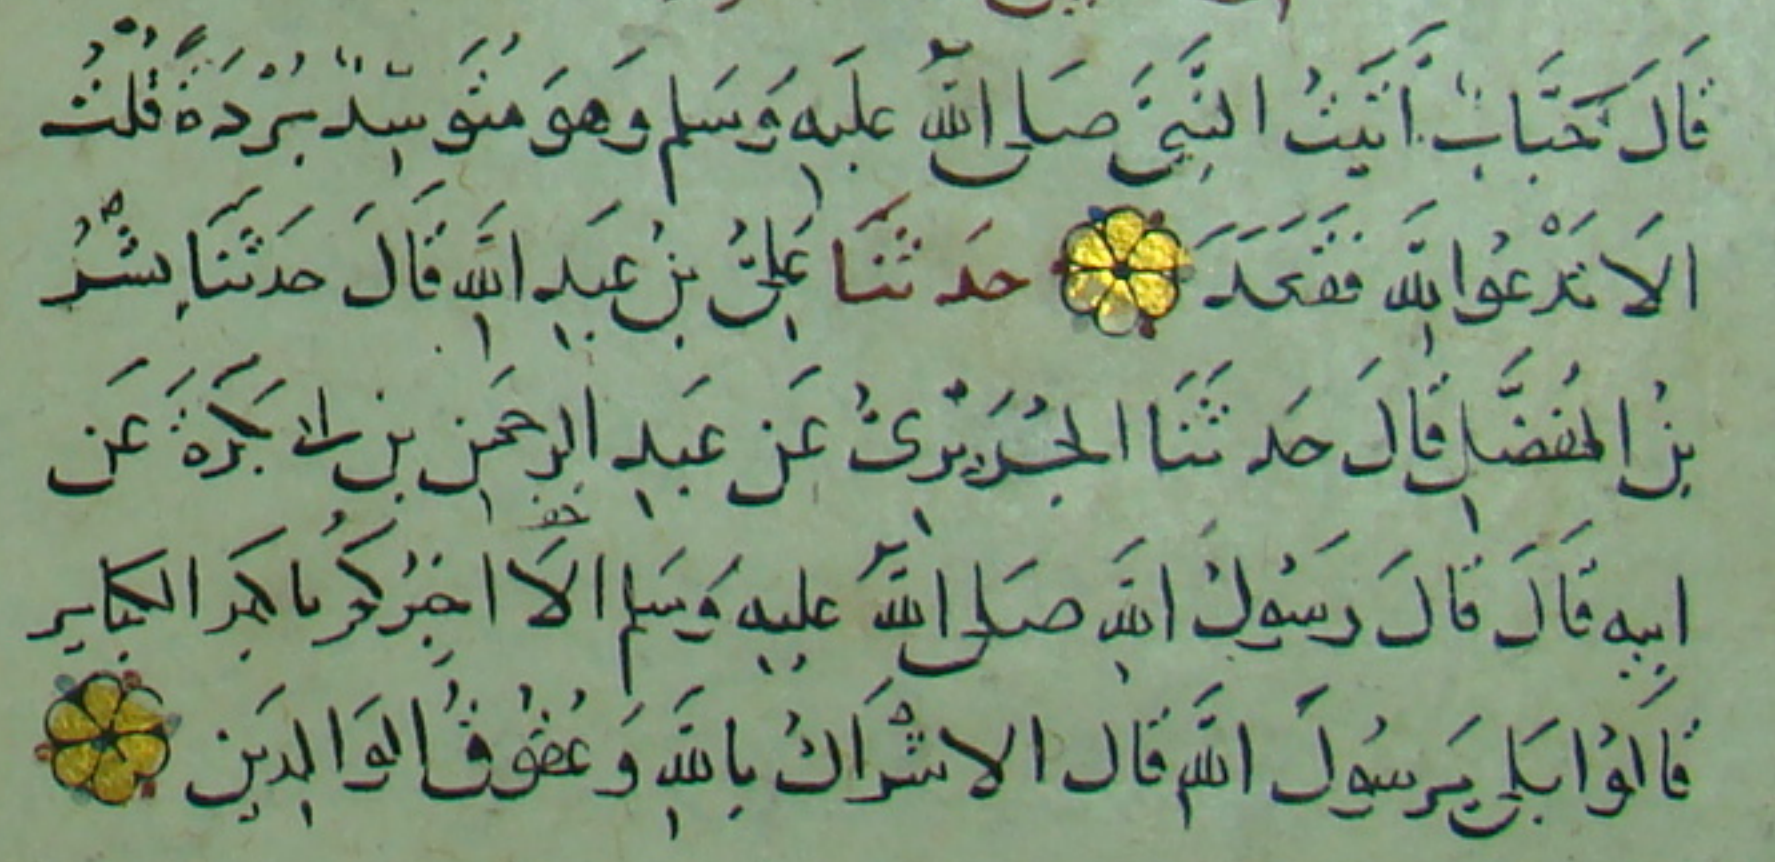 قَالَ خَبَّابٌ أَتَيْتُ النَّبِيَّ صَلى اللَّه عليَهِ وَسَلم وَهوَ مُتَوَسِّدٌ بُرْدَةً قُلْتُ
الَا تَدْعُوا اللَّهَ فقَعَدَ حَدثَنَا عَلِيُّ بنُ عَبَدِ اللَّهِ قَالَ حَدثَنَا بِشْرُ
بنُ المُفَضَّلِ قَالَ حَدثَنَا الجُرَيْرِىُّ عَن عَبَدِ الرحمَنِ بن ابى بَكَرَةَ عَن
ابِيهِ قَالَ قَالَ رَسُولُ اللَّهِ صَلى اللَّه عليهِ وَسَلم الَا اخبِرُكُمُ باكبَر الكبَاير
قَالوُا بَلى يَرسُولَ اللَّه قَال الاشْرَاكُ باللَّهِ وَعُقُوقُ الوَالِدَين